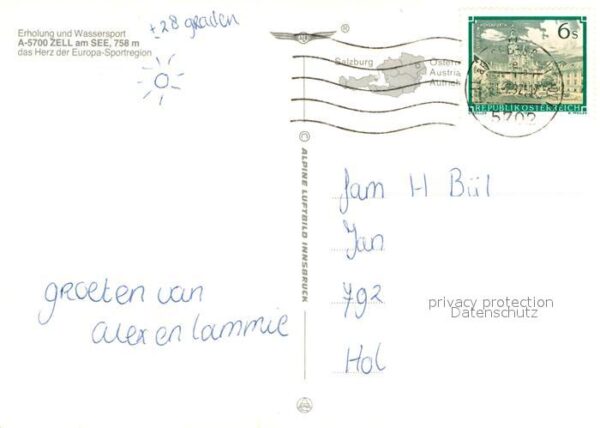 Erholung und Wassersport
A-5700 ZELL am SEE, 758 m
das Herz der Europa-Sportregion
± 28 graden
®
Salzburg
Österr
Austria
Autrich
6s
REPUBLIK ÖSTERREICH
5702
© ALPINE LUFTBILD INNSBRUCK
groeten van
alex en lammie
fam H Bül
Jan
792
Hol
privacy protection
Datenschutz